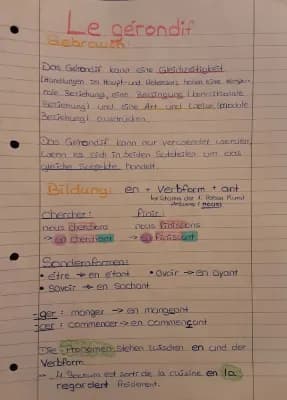 Le gérondif
Gebrauch:
Das Gérondif kann eine Gleichzeitigkeit
(Handlungen im Haupt- und Nebensatz haben eine
Beziehung), eine Bedingung (konditionale
Beziehung) und eine Art und Weise (modale
Beziehung) ausdrücken.
Das Gérondif kann nur verwendet werden,
wenn es sich in beiden Satzteilen um das
gleiche Subjekt handelt.
Bildung: en + Verbform + ant
1. Person Plural
(nous)
Chercher: finir:
nous cherchons nous finissons
→ en cherchant → en finissant
Sonderformen:
• être → en étant • avoir → en ayant
• savoir → en sachant
-ger: manger → en mangeant
-cer: commencer → en commençant
Die Pronomen stehen zwischen en und der
Verbform
→ M. est sorti de la cuisine en la
regardant froidement.